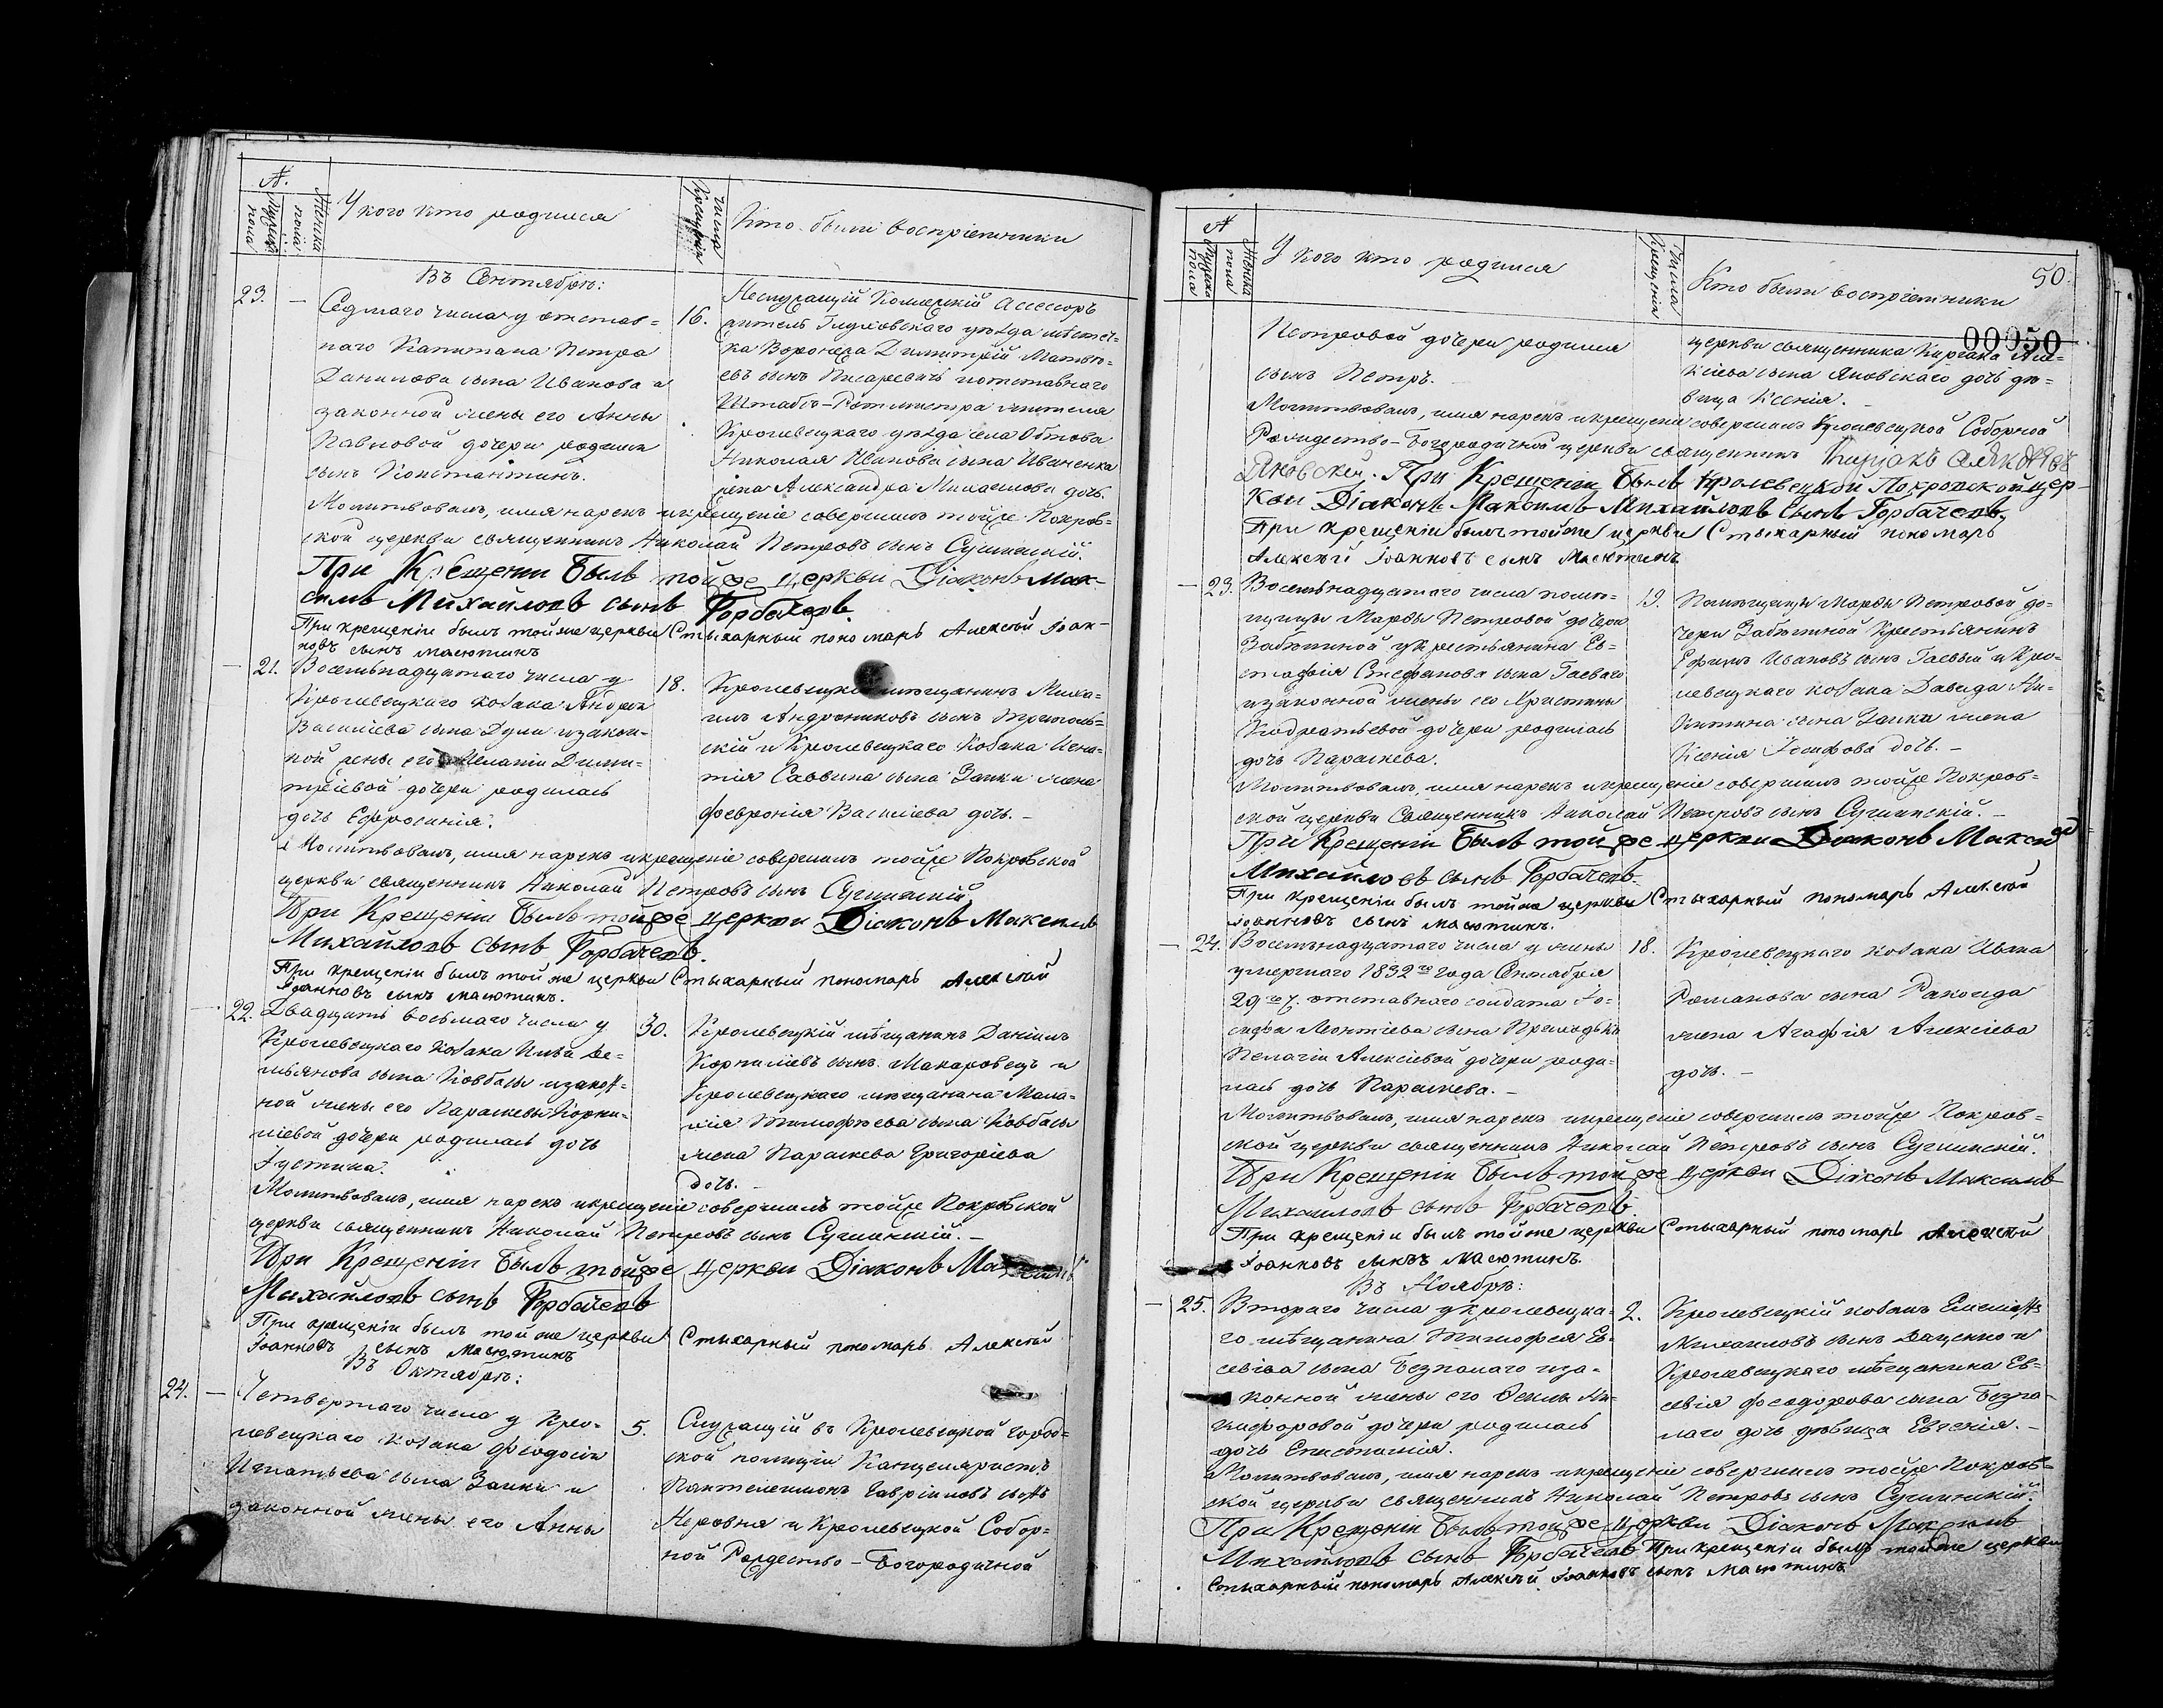 №.
Мужеска пола
Женска пола
У кого кто родился
Числа крещенія
Кто были воспріемники
Въ Сентябрѣ:
23. —
Седмаго числа у отстав=
наго Капитана Петра
Данилова сына Иванова и
законной жены его Анны
Павловой дочери родился
сынъ Константинъ.
16.
Неслужащій Коллежскій Ассесоръ
житель Глуховскаго уѣзда мѣстеч=
ка Воронежа Димитрій Матвѣ=
евъ сынъ Писаревичъ и отставнаго
Штабъ-Ротмистра жителя
Кролевецкаго уѣзда села Обтова
Николая Иванова сына Иваненка
жена Александра Михаилова дочь.
Молитвовалъ, имя нарекъ и крещеніе совершилъ тойже Покров=
ской церкви священникъ Николай Петровъ сынъ
При Крещеніи былъ тойже церкви Діаконъ Мак=
симъ Михайловъ сынъ Горбачевъ.
При крещеніи былъ тойже церкви Стихарный пономарь Алексѣй Іоан-
новъ сынъ Масютинъ
— 21.
Восемьнадцатаго числа у
Кролевецкаго козака Андрея
Василіева сына Дули и закон=
ной жены его Меланіи Дими=
тріевой дочери родилась
дочь Евфросинія.
18.
Кролевецкій мѣщанинъ Миха=
илъ Андрониковъ сынъ
скій и Кролевецкаго Козака Игна=
тія Саввина сына Заики жена
Февронія Василіева дочь. —
Молитвовалъ, имя нарекъ и крещеніе совершилъ тойже Покровской
церкви священникъ Николай Петровъ сынъ
При Крещеніи былъ тойже церкви Діаконъ Максимъ
Михайловъ сынъ Горбачевъ.
При крещеніи былъ тойже церкви Стихарный пономарь Алексѣй
Іоанновъ сынъ Масютинъ.
— 22.
Двадцать восьмаго числа у
Кролевецкаго козака Ильи Де=
мьянова сына Ковбасы и закон=
ной жены его Параскевы Корни=
ліевой дочери родилась дочь
Іустина.
30.
Кролевецкій мѣщанинъ Даніилъ
Корниліевъ сынъ Макаровецъ и
Кролевецкаго мѣщанина Мала=
хія Тимофѣева сына Ковбасы
жена Параскева Григоріева
дочь. —
Молитвовалъ, имя нарекъ и крещеніе совершилъ тойже Покровской
церкви священникъ Николай Петровъ сынъ
При Крещеніи былъ тойже церкви Діаконъ Максимъ
Михайловъ сынъ Горбачевъ
При крещеніи былъ тойже церкви Стихарный пономарь Алексѣй
Іоанновъ сынъ Масютинъ
Въ Октябрѣ:
24. —
Четвертаго числа у Кро=
левецкаго козака Феодосія
Игнатьева сына Заики и
законной жены его Анны
5.
Служащій въ Кролевецкой город=
ской полиціи Канцеляристъ
Пантелеимонъ Гавріиловъ сынъ
и Кролевецкой Собор=
ной Рождество-Богородичной
№
Мужеска пола
Женска пола
У кого кто родился
Числа крещенія
Кто были воспріемники
50.
00050
Петровой дочери родился
сынъ Петръ.
церкви священника Киріака Але=
ксіева сына Яновскаго дочь дѣ=
вица Ксенія. —
Молитвовалъ, имя нарекъ и крещеніе совершилъ Кролевецкой Соборной
Рождество-Богородичной церкви священникъ Киріакъ
Яновскій. При Крещеніи былъ Кролевецкой Покровской цер=
кви Діаконъ Максимъ Михайловъ сынъ Горбачевъ.
При крещеніи былъ тойже церкви Стихарный пономарь
Алексѣй Іоанновъ сынъ Масютинъ
— 23.
Восемьнадцатаго числа помѣ=
щицы Марѳы Петровой дочери
Забѣлиной у крестьянина Ев=
стафія Стефанова сына Гаеваго
и законной жены его Христины
Кодратьевой дочери родилась
дочь Параскева.
19.
Помѣщицы Марѳы Петровой до=
чери Забѣлиной крестьянинъ
Ефимъ Ивановъ сынъ Гаевый и Кро=
левецкаго козака Давида Ни=
китина сына Заики жена
Ксенія Іосифова дочь. —
Молитвовалъ, имя нарекъ и крещеніе совершилъ тойже Покров=
ской церкви Священникъ Николай Петровъ сынъ
При Крещеніи былъ тойже церкви Діаконъ Максимъ
Михайловъ сынъ Горбачевъ.
При крещеніи былъ тойже церкви Стихарный пономарь Алексѣй
Іоанновъ сынъ Масютинъ.
— 24.
Восемьнадцатаго числа у жены
умершаго 1832го года Сентября
29го ч. отставнаго солдата Іо=
сифа Леонтіева сына
Пелагіи Алексіевой дочери роди=
лась дочь Параскева. —
18.
Кролевецкаго козака Ивана
Романова сына
жена Агафія Алексіева
дочь. —
Молитвовалъ, имя нарекъ и крещеніе совершилъ тойже Покров=
ской церкви священникъ Николай Петровъ сынъ
При Крещеніи былъ тойже церкви Діаконъ Максимъ
Михаиловъ сынъ Горбачевъ.
При крещеніи былъ тойже церкви Стихарный пономарь Алексѣй
Іоанновъ сынъ Масютинъ.
Въ Ноябрѣ:
— 25.
Втораго числа у кролевецка=
го мѣщанина Тимофея Ев=
севіва сына Безпалаго и за=
конной жены его Ни=
кифоровой дочери родилась
дочь
2.
Кролевецкій козакъ
Михаиловъ сынъ Ващенко и
Кролевецкаго мѣщанина Ев=
севія Феодорова сына Безпа=
лаго дочь дѣвица Евгенія. —
Молитвовалъ, имя нарекъ и крещеніе совершилъ тойже Покров=
ской церкви священникъ Николай Петровъ сынъ
При Крещеніи былъ тойже церкви Діаконъ Максимъ
Михайловъ сынъ Горбачевъ При крещеніи былъ тойже церкви
Стихарный пономарь Алексѣй Іоанновъ сынъ Масютинъ